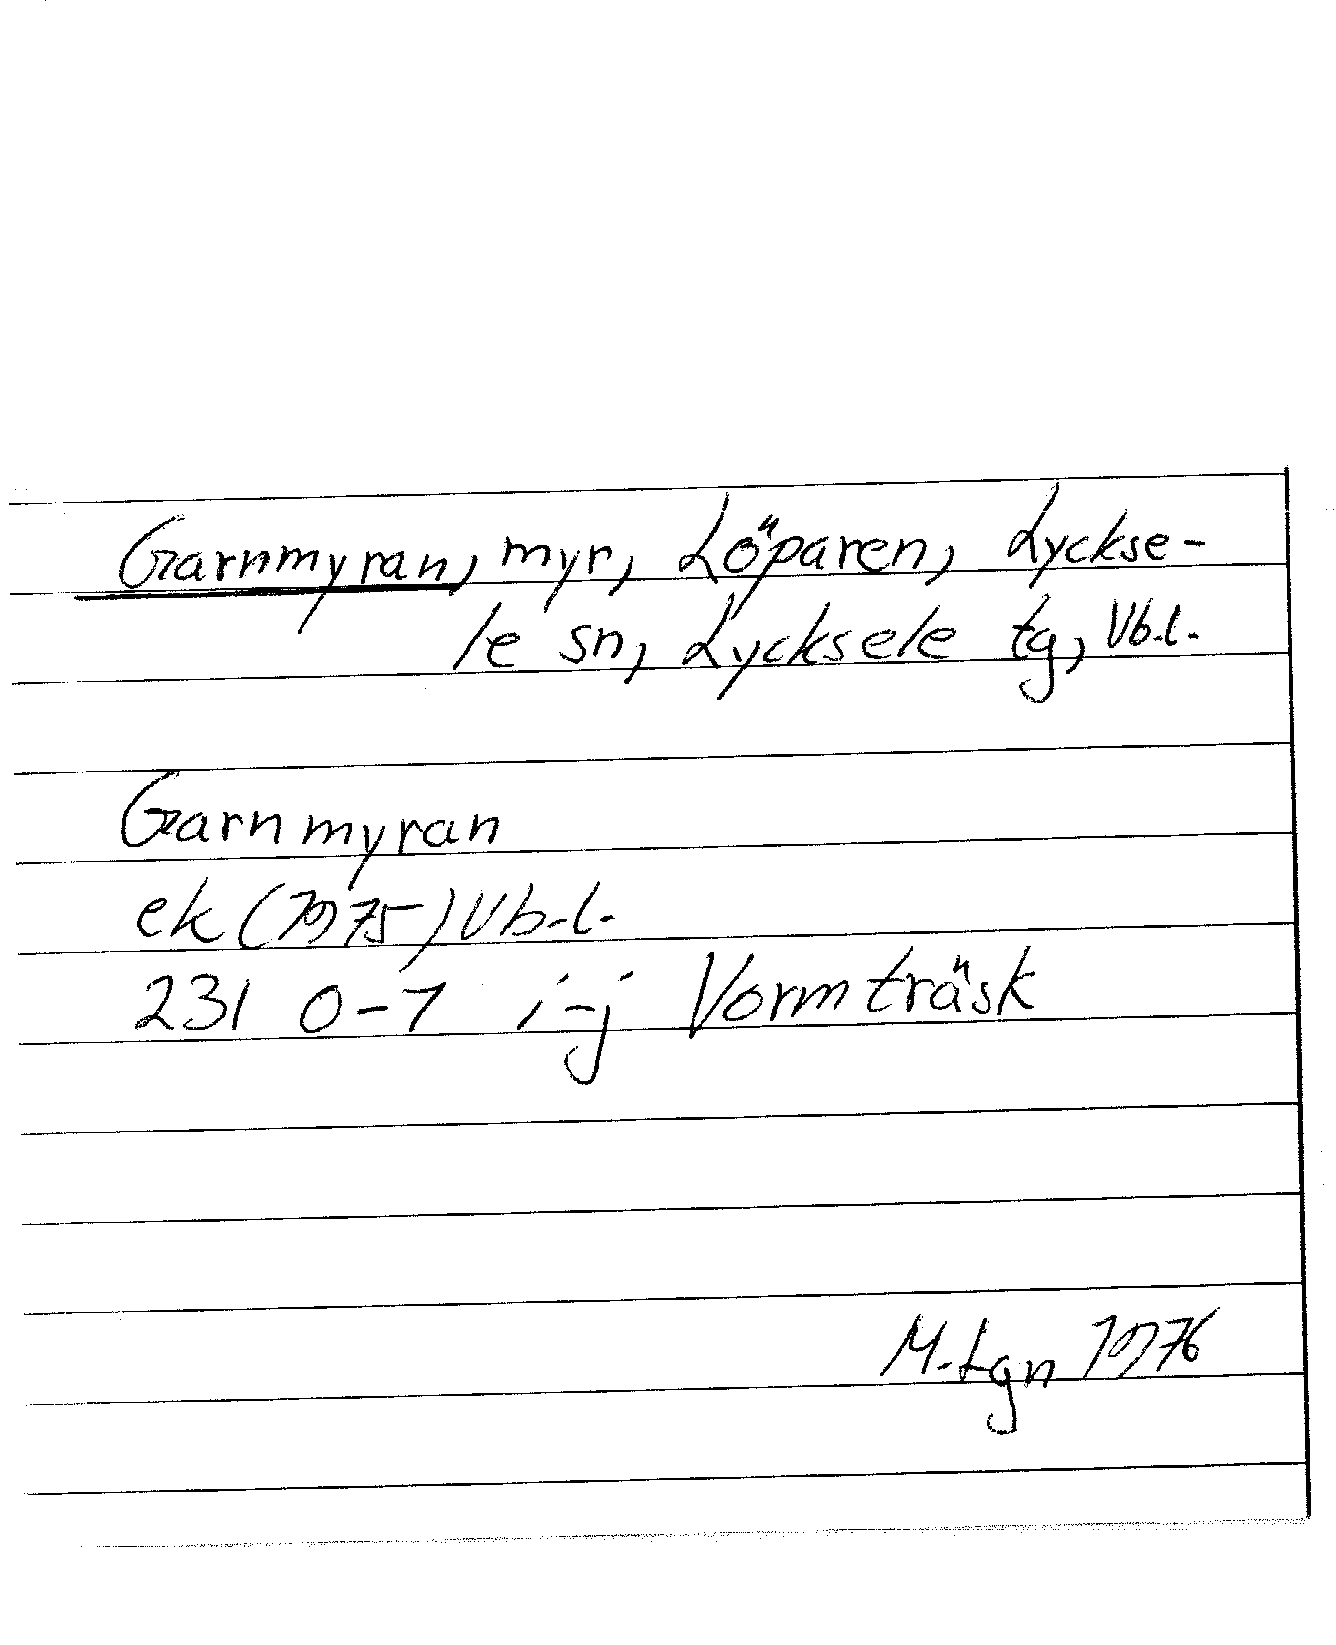 Garnmyran, myr, Löparen, Lyckse-
le sn, Lycksele tg, Vb.l.
Garnmyran
ek (1975) Vb.l.
231 0-1 i-j Vormträsk
M. Lgn 1976